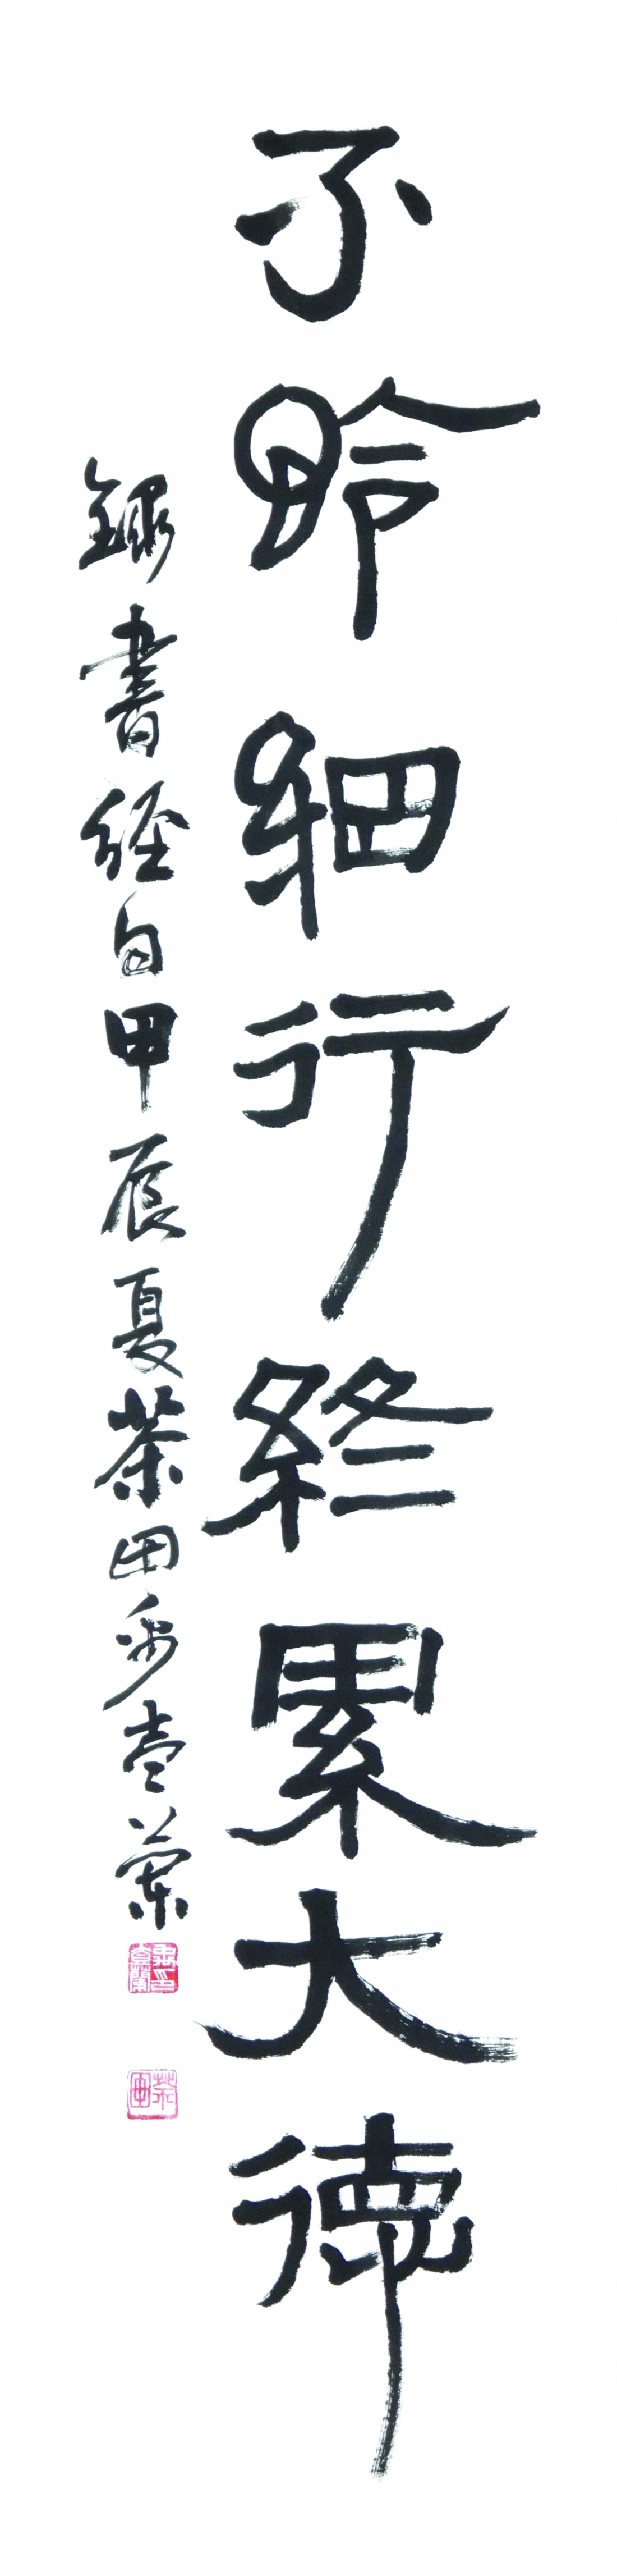 不矜細行終累大德
錄書經句甲辰夏茶田蘭